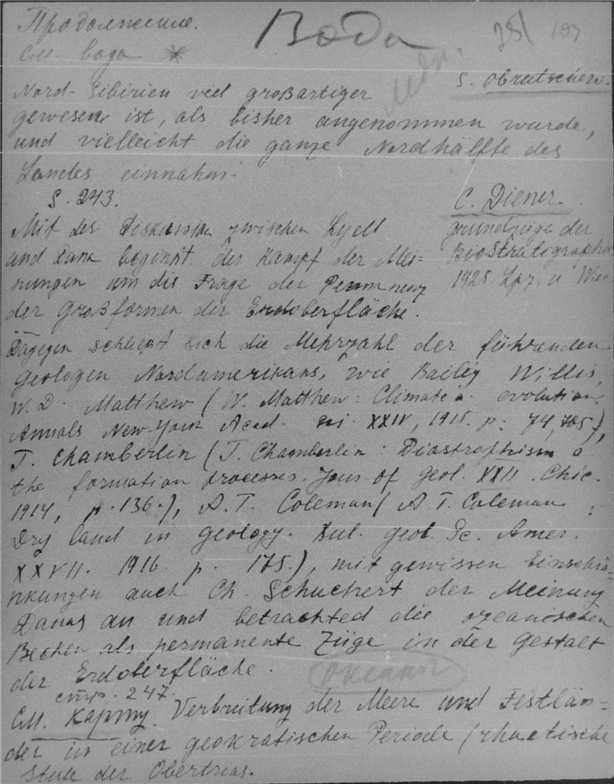 Продолжение.
Вода
28/
107
См. вода *
S. Obrutschew.
Nord-Sibirien viel großartiger
gewesen ist, als bisher angenommen wurde,
und vielleicht die ganze Nordhälfte des
Landes einnahm.
S. 243.
C. Diener.
Mit der Diskussion zwischen Lyell
Grundzüge der
und Dana beginnt der Kampf der Mei-
Biostratigraphie
nungen um die Frage der Permanenz
1925 Lpz. u Wien
der Großformen der Erdoberfläche.
Dagegen schließt sich die Mehrzahl der führenden
Geologen Nordamerikas, wie Bailey Willis,
W. D. Matthew (W. Matthew: Climate a. evolution.
Annals New-York Acad. XXIV, 1915. p. 74, 
T. Chamberlin (T. Chamberlin: Diastrophism a
the formation processes. Jour. of Geol. XXII. Chic.
1914, p. 136.), A. T. Coleman (A T. Coleman:
Dry land in Geology. Bul. Geol. Sc. Amer.
XXVII. 1916. p. 175.), mit gewissen Einschrä-
nkungen auch Ch. Schuchert der Meinung
Danas an und betrachted die ozeanischen
Becken als permanente Züge in der Gestalt
der Erdoberfläche.
океан
стр. 247.
См. карту. Verbreitung der Meere und Festlän-
der in einer geokratischen Periode (rhaetische
Stufe der Obertrias.